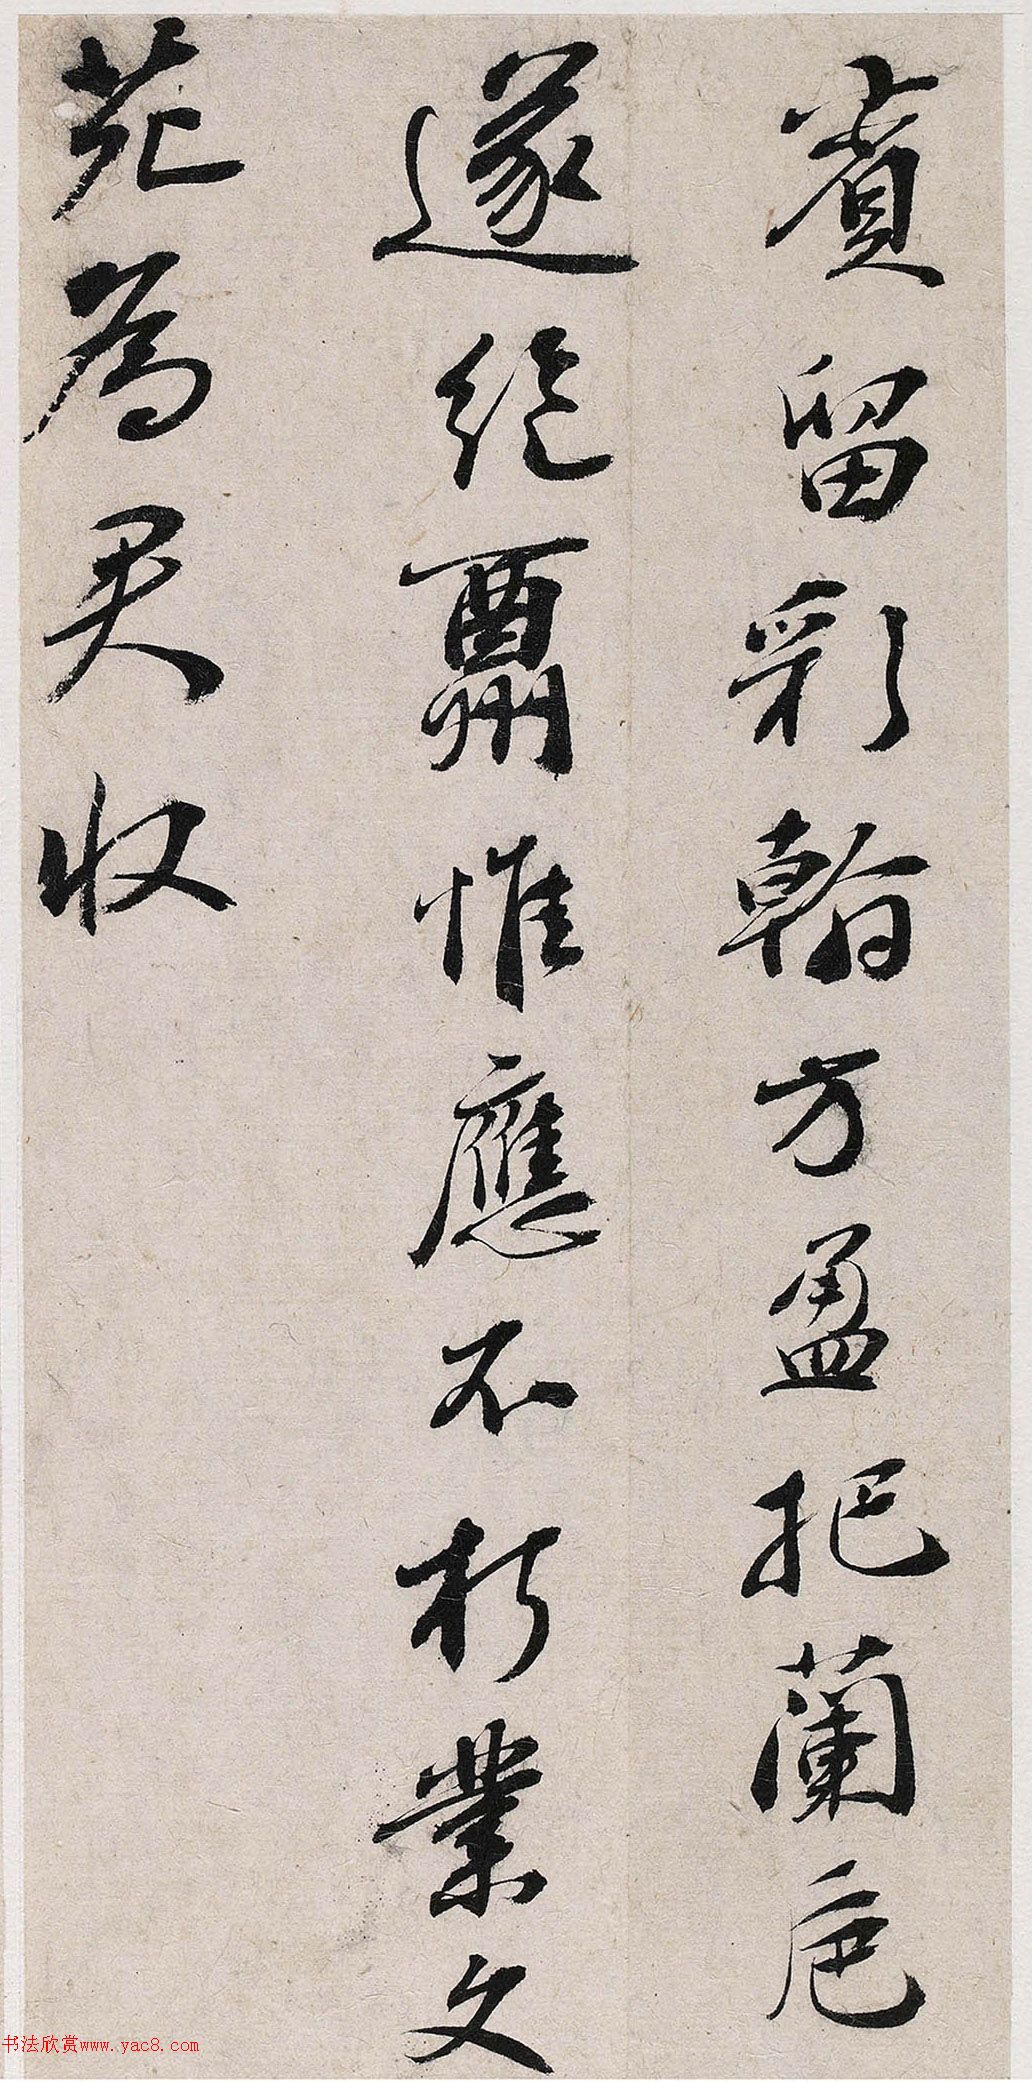 賓留彩翰方盈把蘭卮
遂絶
惟應不朽業文
苑為君收
书法欣赏www.yac8.com